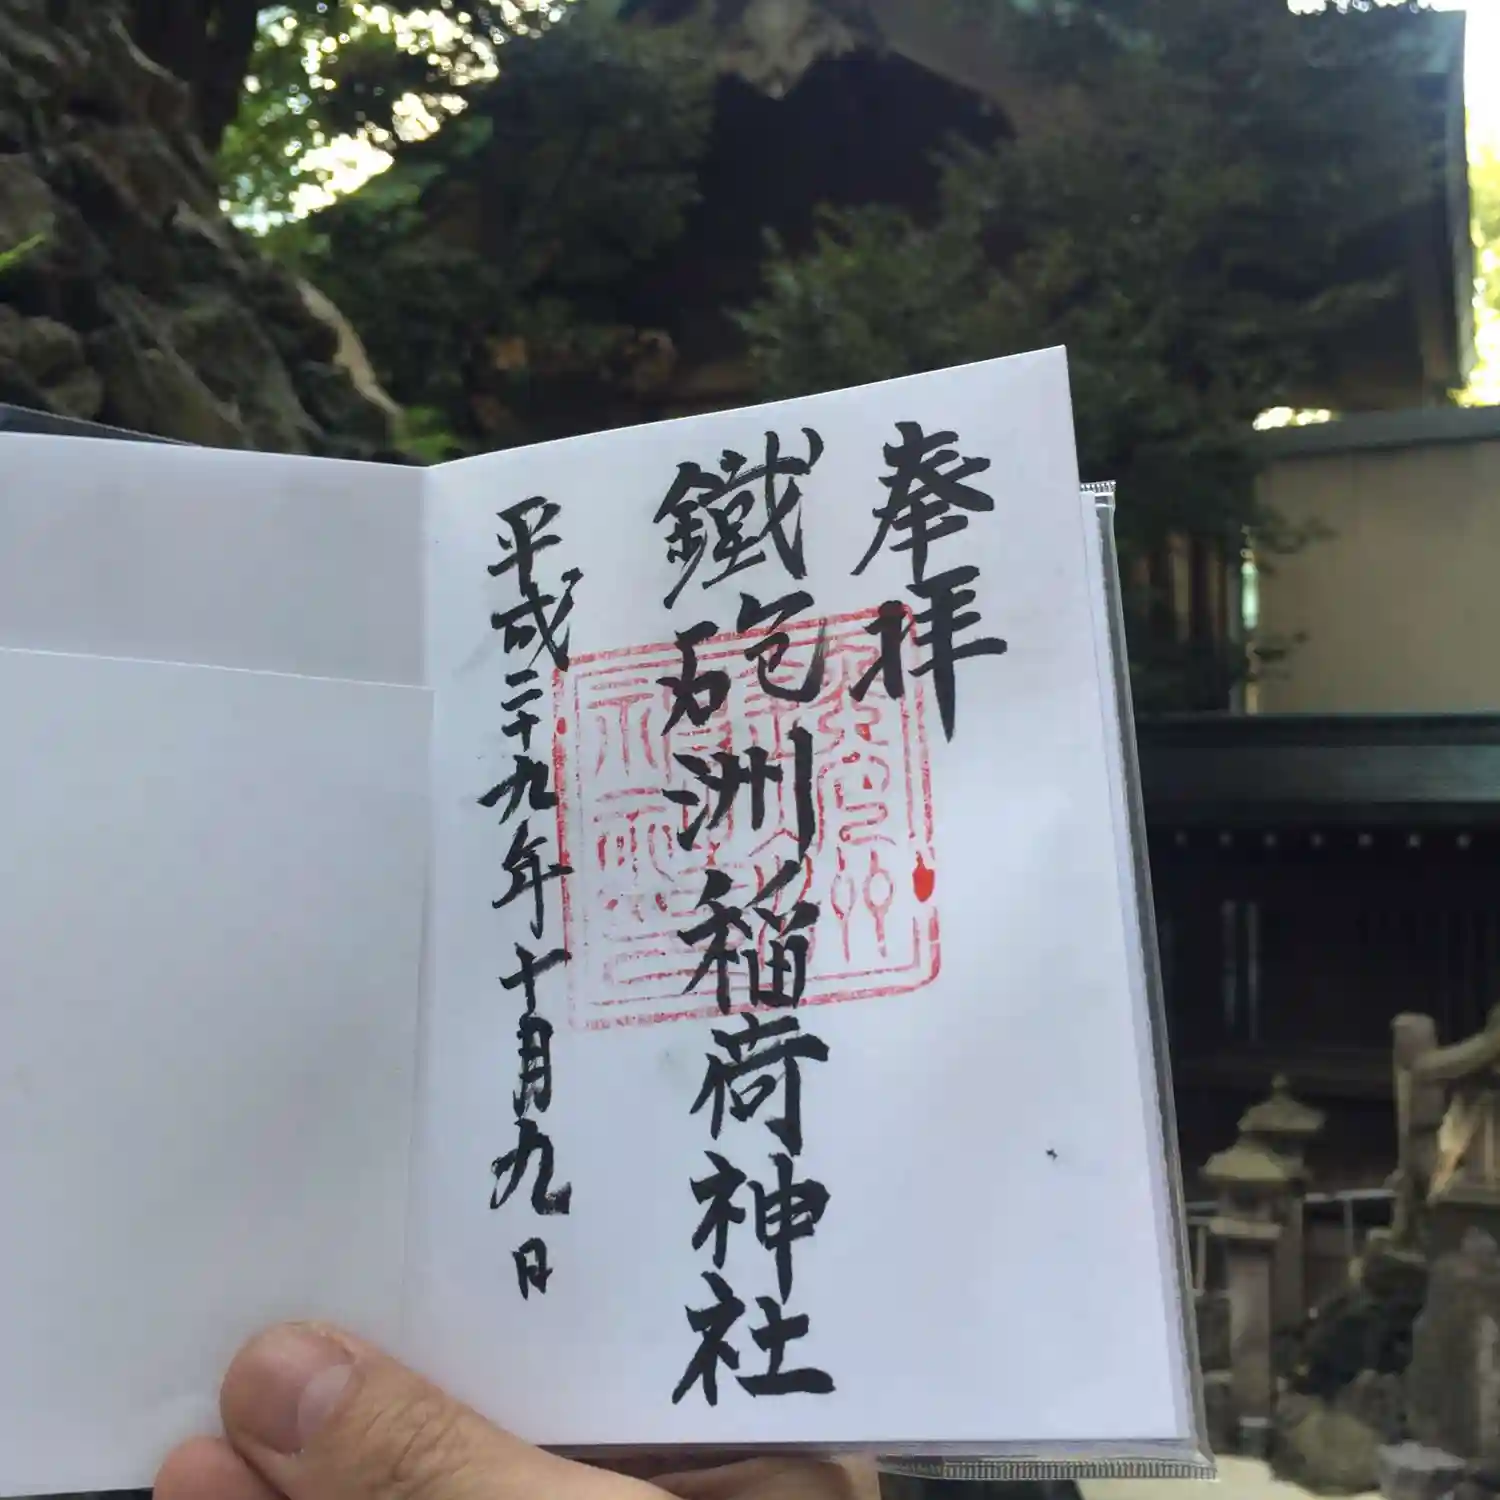 奉拝
鐵砲洲稲荷神社
平成二十九年十月九日